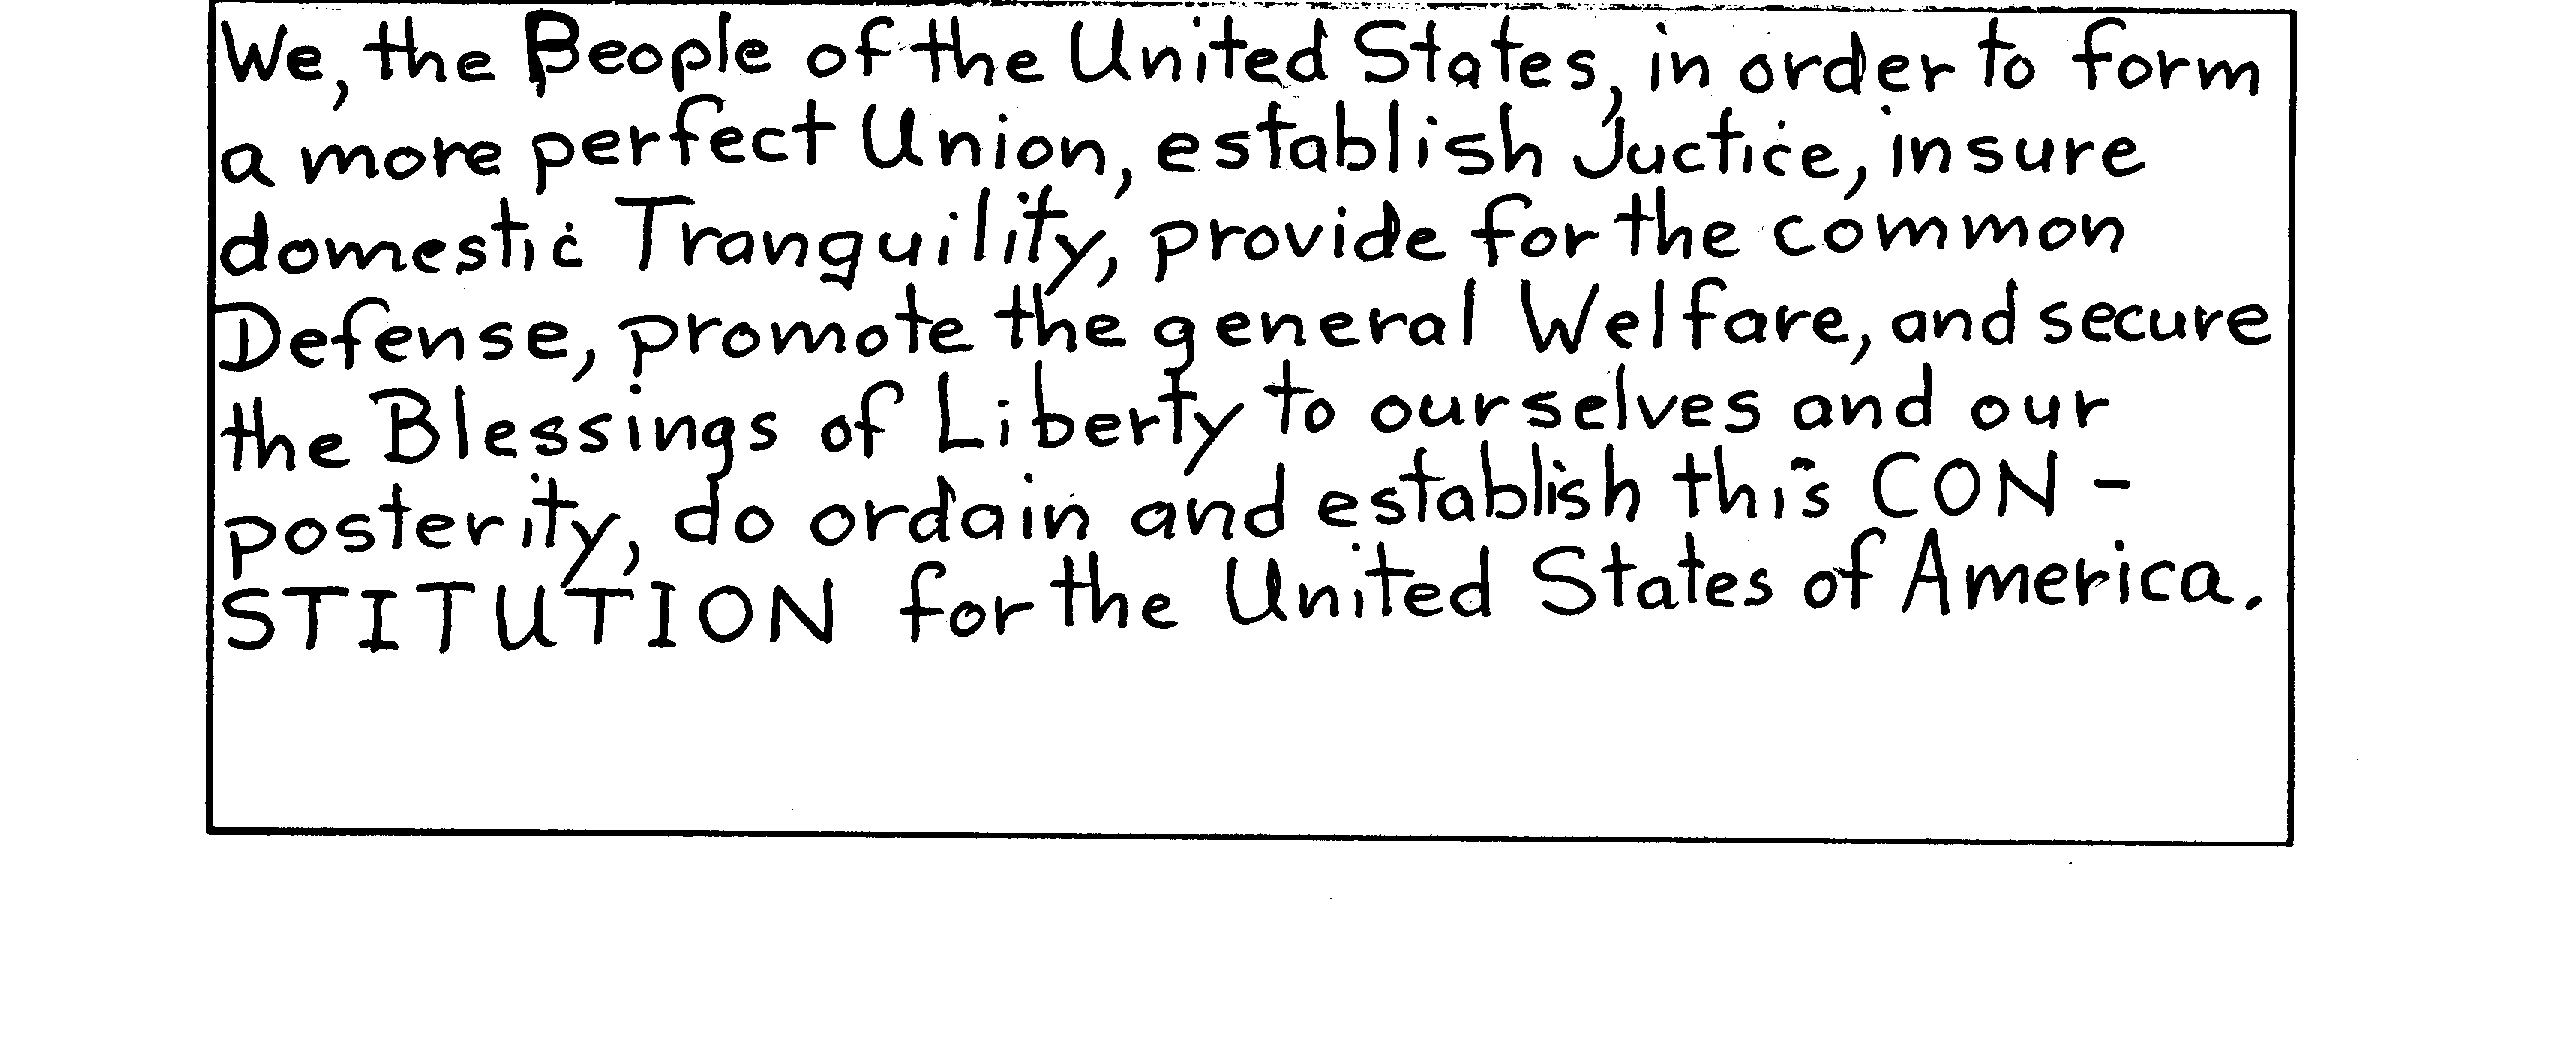 We, the People of the United States, in order to form
a more perfect Union, establish Juctice, insure
domestic Tranquility, provide for the common
Defense, promote the general Welfare, and secure
the Blessings of Liberty to ourselves and our
posterity, do ordain and establish this CON-
STITUTION for the United States of America.